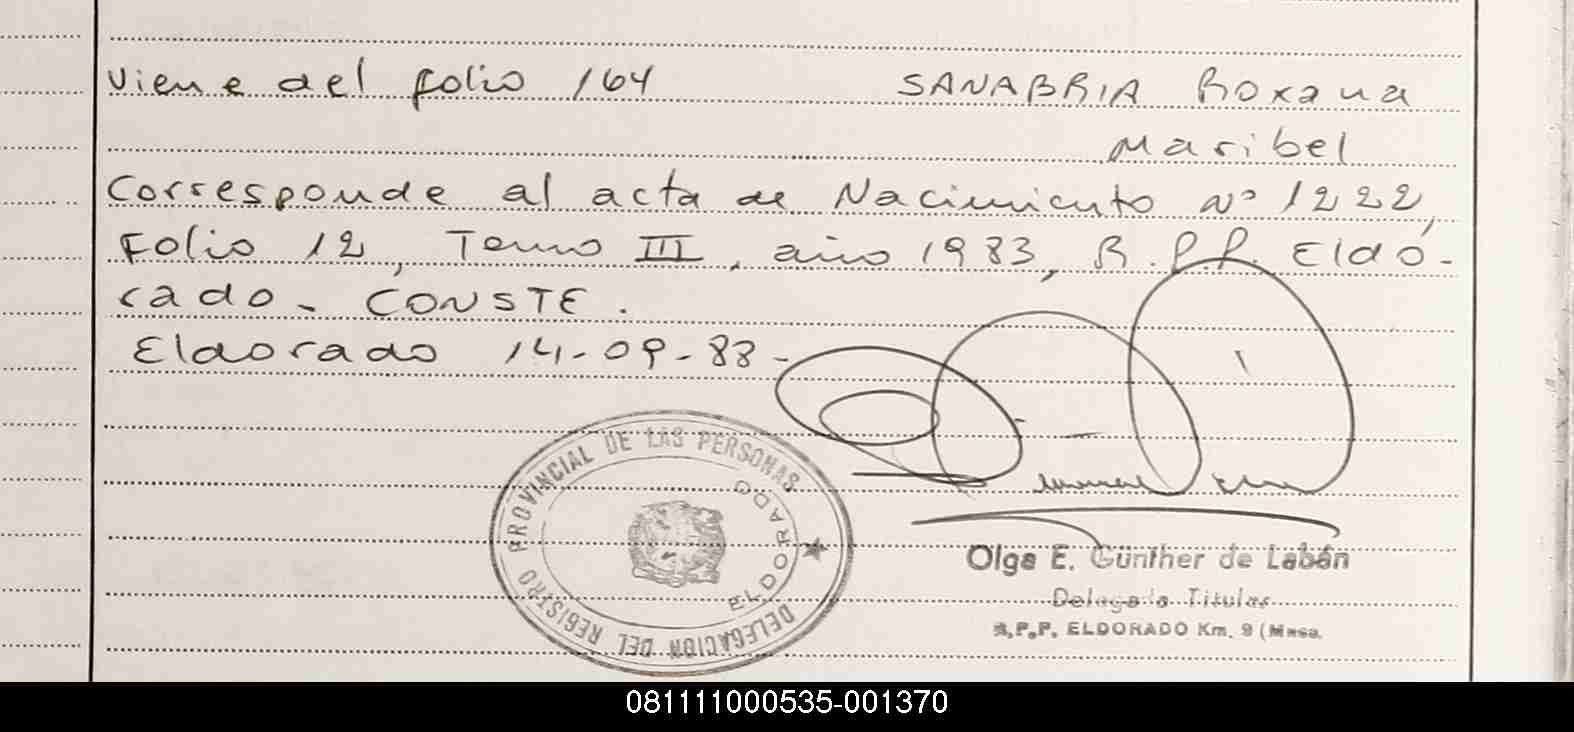 Viene del folio 164 SANABRIA Roxana
Maribel
Corresponde al acta de Nacimiento Nº 1222,
Folio 12, Tomo III, año 1983, R.P.P. Eldo-
rado. CONSTE.
Eldorado 14-09-88-
DELEGACION DEL REGISTRO PROVINCIAL DE LAS PERSONAS
ELDORADO
Olga E. Günther de Labán
Delegada Titular
R.P.P. ELDORADO Km. 9 (Mnes.
081111000535-001370